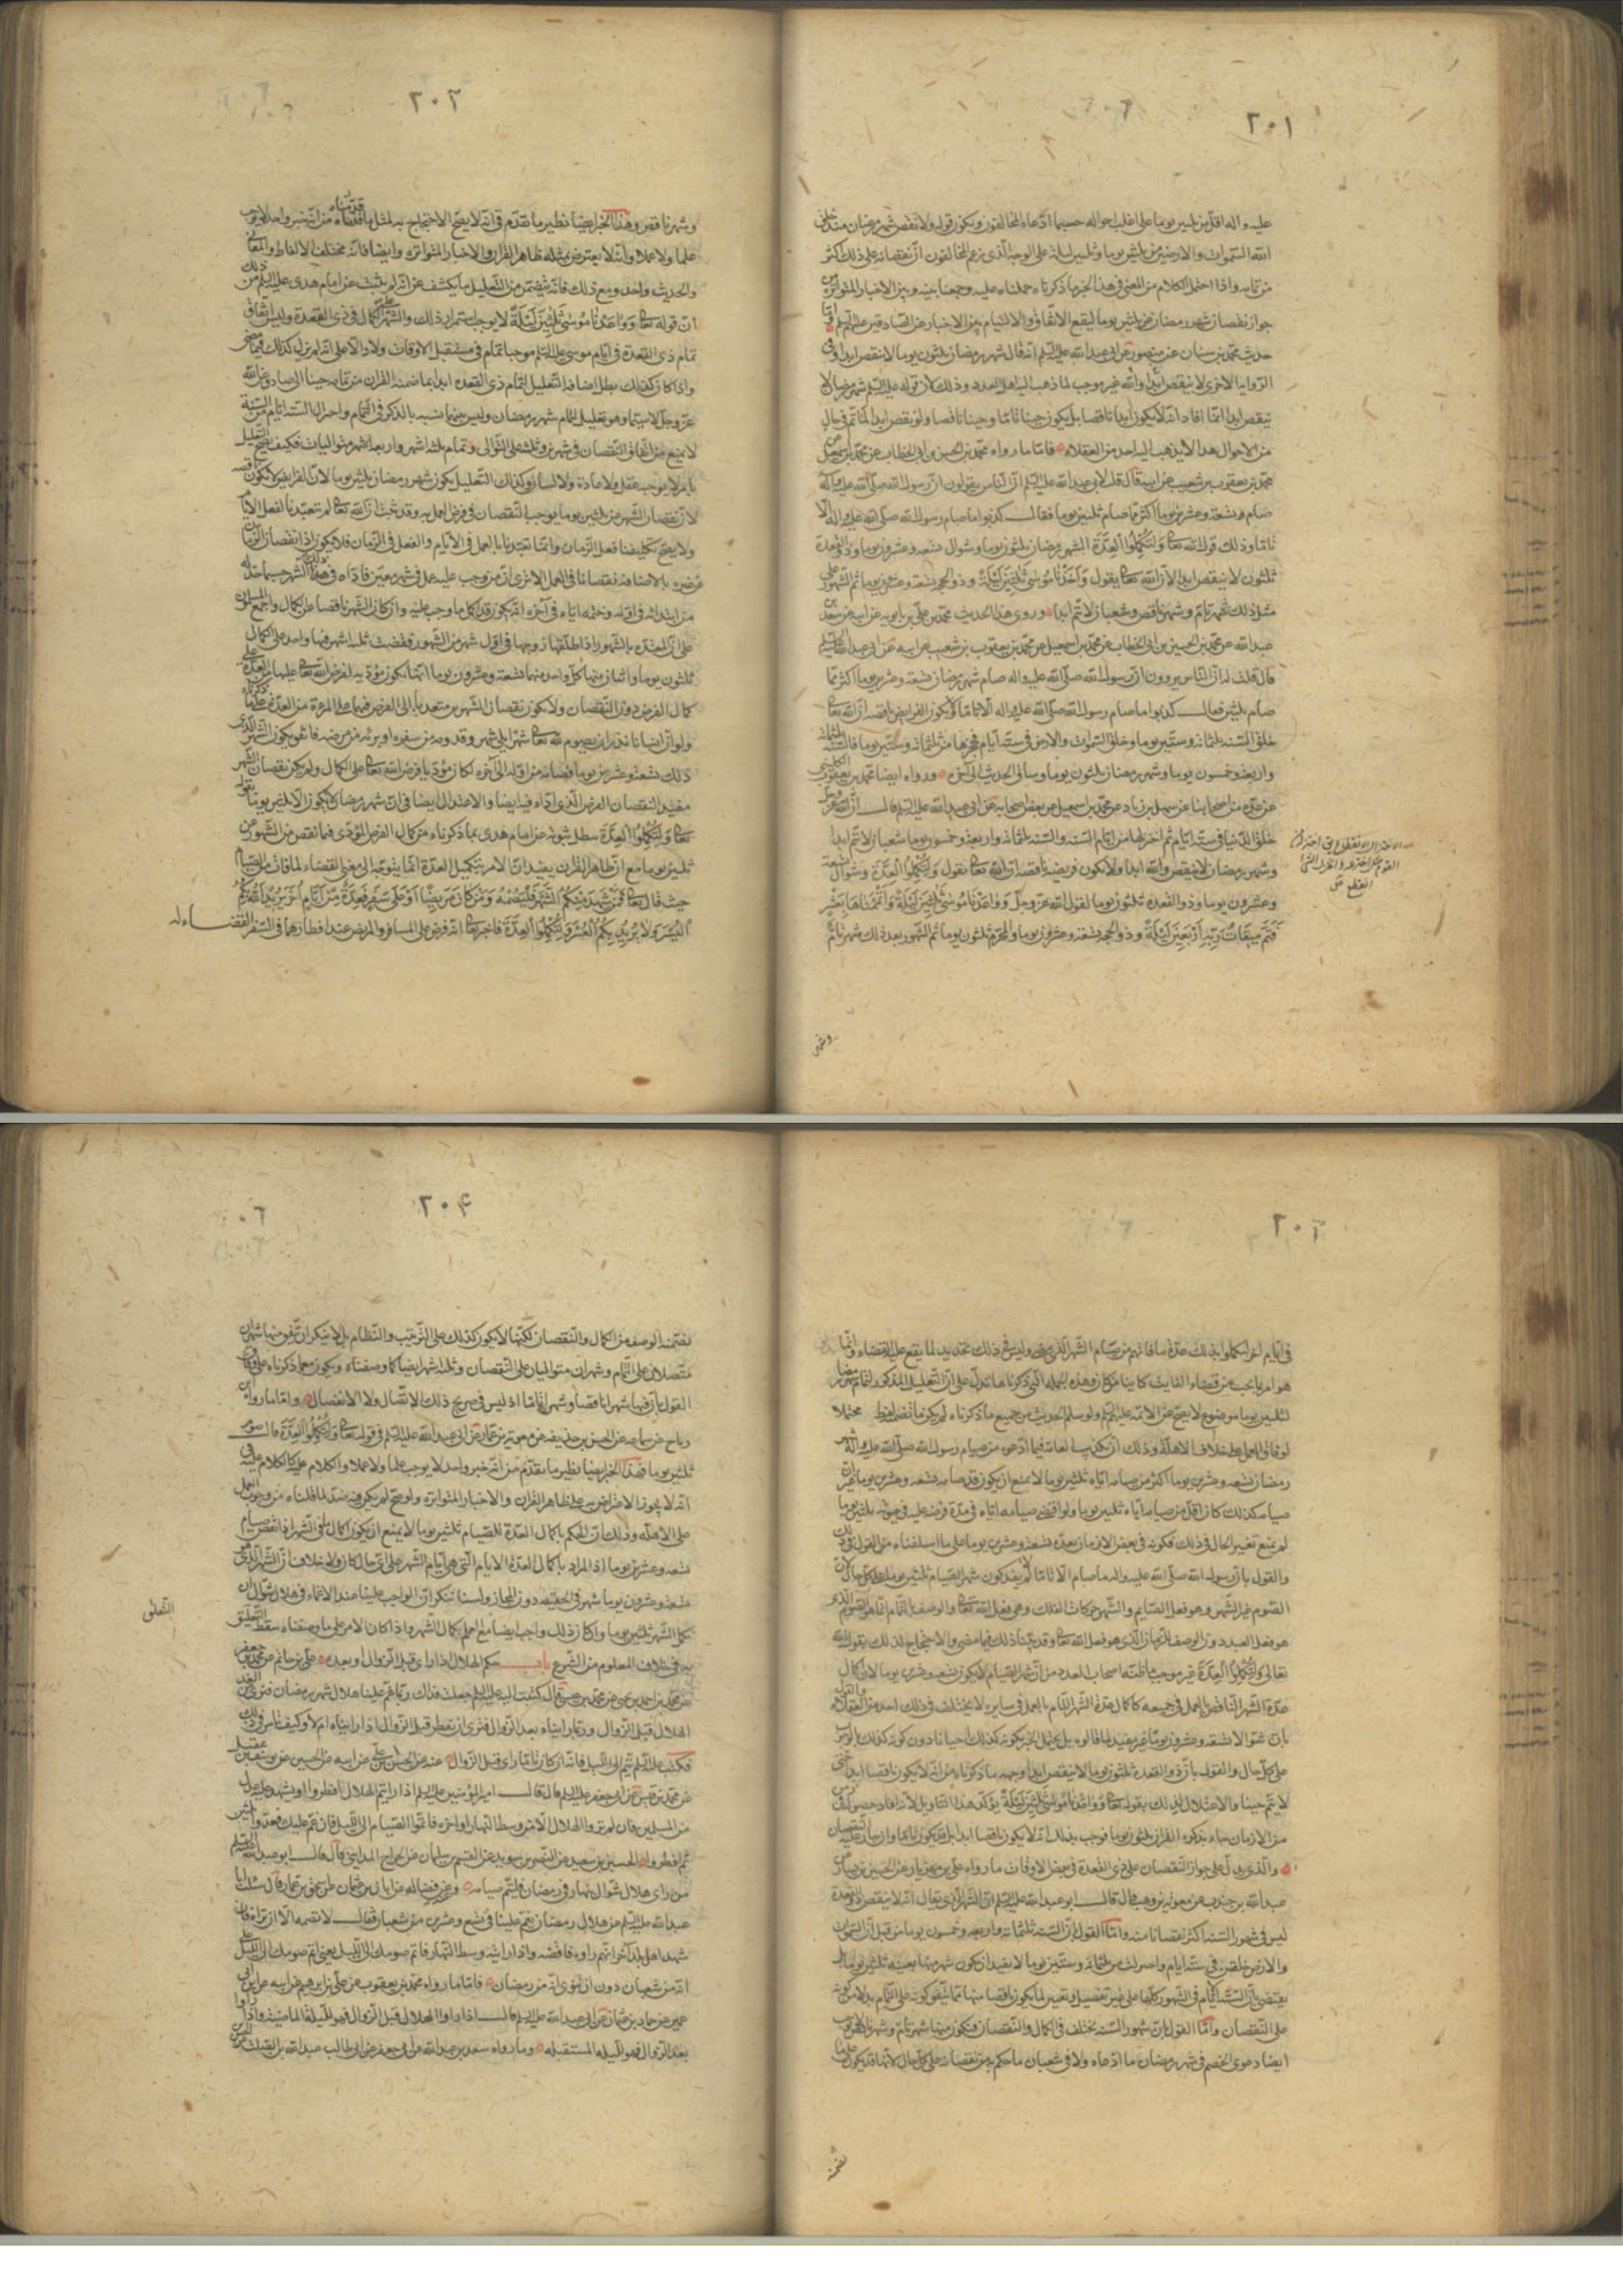 ٢٠١
عليه واله اقل من ثلثين يوما على اغلب احواله حسبما ادعاه المخالفون ويكون قوله ولا نقص شهر رمضان منذ خلق
الله السموات والارض من ثلثين يوما وثلثين ليلة على الوجه الذي زعم المخالفون ان نقصانه على ذلك اكثر
من تمامه واذا احتمل الكلام من المعنى في هذا الخبر ما ذكرناه حملناه عليه وجمعنا بينه وبين الاخبار المتواترة في
جواز نقصان شهر رمضان عن ثلثين يوما ليقع الاتفاق والالتيام بين الاخبار عن الصادقين عليهم السلم فاما
حديث محمد بن سنان عن منصور عن ابي عبد الله عليه السلم انه قال شهر رمضان ثلثون يوما لا ينقص ابدا وفي
الرواية الاخرى لا ينقص ابدا والله غير موجب لما ذهب اليه اهل العدد وذلك لان قوله عليه السلم شهر رمضان لا
ينقص ابدا انما افاد انه لا يكون ابدا ناقصا بل يكون حينا تاما وحينا ناقصا ولو نقص ابدا لما تم في حال
من الاحوال هذا لا يذهب اليه احد من العقلاء فاما ما رواه محمد بن الحسين بن ابي الخطاب عن محمد بن اسمعيل عن
محمد بن يعقوب بن شعيب عن ابيه قال قلت لابي عبد الله عليه السلم ان الناس يقولون ان رسول الله صلى الله عليه واله
صام تسعة وعشرين يوما اكثر مما صام ثلثين يوما فقال كذبوا ما صام رسول الله صلى الله عليه واله الا
تاما وذلك قول الله تعالى ولتكملوا العدة الشهر رمضان ثلثون يوما وشوال تسعة وعشرون يوما وذو القعدة
ثلثون لا ينقص ابدا لان الله تعالى يقول وواعدنا موسى ثلثين ليلة وذو الحجة تسعة وعشرون يوما ثم الشهور على
مثل ذلك شهر تام وشهر ناقص وشعبان لا يتم ابدا وروى هذا الحديث محمد بن علي بن بابويه عن ابيه عن سعد بن
عبد الله عن محمد بن الحسين بن ابي الخطاب عن محمد بن اسمعيل عن محمد بن يعقوب بن شعيب عن ابيه عن ابي عبد الله عليه السلم
قال قلت له ان الناس يروون ان رسول الله صلى الله عليه واله صام شهر رمضان تسعة وعشرين يوما اكثر مما
صام ثلثين فقال كذبوا ما صام رسول الله صلى الله عليه واله الا تاما ولا يكون الفرايض ناقصة ان الله تعالى
خلق السنة ثلثمائة وستين يوما وخلق السموات والارض في ستة ايام فحجزها من ثلثمائة وستين يوما فالسنة ثلثمائة
واربعة وخمسون يوما وشهر رمضان ثلثون يوما وساق الحديث الى اخره ورواه ايضا محمد بن يعقوب الكليني
عن عدة من اصحابنا عن سهل بن زياد عن محمد بن اسمعيل عن بعض اصحابه عن ابي عبد الله عليه السلم قال ان الله عز وجل
خلق الدنيا في ستة ايام ثم اختزلها من ايام السنة والسنة ثلثمائة واربعة وخمسون يوما شعبان لا يتم ابدا
وشهر رمضان لا ينقص والله ابدا ولا تكون فريضة ناقصة ان الله تعالى يقول ولتكملوا العدة وشوال تسعة
وعشرون يوما وذو القعدة ثلثون يوما لقول الله عز وجل وواعدنا موسى ثلثين ليلة واتممناها بعشر
فتم ميقات ربه اربعين ليلة وذو الحجة تسعة وعشرون يوما والمحرم ثلثون يوما ثم الشهور بعد ذلك شهر تام
وشهر
٢٠٢
وشهر ناقص وهذا الخبر ايضا نظير ما تقدم في انه لا يصح الاحتجاج به لمثل ما قدمناه من انه خبر واحد لا يوجب
علما ولا عملا وانه لا يعترض بمثله ظاهر القران والاخبار المتواترة وايضا فانه مختلف الالفاظ والمعاني
والحديث واحد ومع ذلك فانه يتضمن من التعليل ما يكشف عن انه لم يثبت عن امام هدى عليه السلم من ذلك
ان قوله تعالى وواعدنا موسى ثلثين ليلة لا يوجب استمرار ذلك على الكمال في ذي القعدة وليس اتفاق
تمام ذي القعدة في ايام موسى عليه السلم موجبا تمامه في مستقبل الاوقات ولا دالا على انه لم يزل كذلك فيما مضى
واذا كان كذلك بطل اضافة التعليل لتمام ذي القعدة ابدا بما تضمنه القران من تمامه حينا الى صادق عن الله
عز وجل لا سيما وهو تعليل لتمام شهر رمضان وليس بينهما نسبة بالذكر في التمام واختزال الستة ايام من السنة
لا يمنع من اتفاق النقصان في شهرين وثلثة على التوالي وتمام ثلثة اشهر واربعة اشهر متواليات فكيف يصح التعليل
بامر لا يوجبه عقل ولا عادة ولا لسان وكذلك التعليل بكون شهر رمضان ثلثين يوما لان الفرايض لا تكون ناقصة
لان نقصان الشهر عن ثلثين يوما لا يوجب النقصان في فرض العمل به وقد ثبت ان الله تعالى لم يتعبدنا بفعل الايام
ولا يصح تكليفنا فعل الزمان وانما تعبدنا بالعمل في الايام والفعل في الزمان فلا يكون اذا نقصان الزمان
من ابتدائه في اوله وختمه اياه في اخره انه يكون قد اكمل ما وجب عليه وان كان الشهر ناقصا عن الكمال واجمع المسلمون
على ان المعتدة بالشهور اذا طلقها زوجها في اول شهر من الشهور فقضت ثلثة اشهر فيها واحد على الكمال
ثلثون يوما واثنان منها كل واحد منهما تسعة وعشرون يوما انها تكون مؤدية لفرض الله تعالى عليها من العدة على
كمال الفرض دون النقصان ولا يكون نقصان الشهرين متعديا الى الفرض فيهما على المرءة من العدة على ما ذكرناه
ولو ان انسانا نذر ان يصوم لله تعالى شهرا يلي شهر وقدومه من سفره او برئه من مرضه فاتفق كون الشهر الذي يلي
ذلك تسعة وعشرين يوما فصامه من اوله الى اخره لكان مؤديا فرض الله تعالى على الكمال ولم يكن نقصان الشهر
مفيد النقصان الفرض الذي اداه فيه ايضا والاعتلال ايضا في ان شهر رمضان لا يكون الا ثلثين يوما بقوله
تعالى ولتكملوا العدة يبطل ثبوته عن امام هدى بما ذكرناه من كمال الفرض المؤدى فيما نقص من الشهور عن
ثلثين يوما مع ان ظاهر القران يفيد ان الامر بتكميل العدة انما يتوجه الى معنى القضاء لما فات من الصيام
حيث قال تعالى فمن شهد منكم الشهر فليصمه ومن كان مريضا او على سفر فعدة من ايام اخر يريد الله بكم
اليسر ولا يريد بكم العسر ولتكملوا العدة فاخبر تعالى انه فرض على المسافر والمريض عند افطارهما في السفر القضاء له
٢٠٣
في ايام اخر ليكملوا بذلك عدة ما فاتهم من صيام الشهر الذي مضى وليس في ذلك تحديد لما يقع عليه القضاء وانما
هو امر بما يجب من قضاء الفايت كاينا ما كان وهذه الجملة التي ذكرناها تدل على ان التعليل المذكور لتمام شهر رمضان
ثلثين يوما موضوع لا يصح عن الائمة عليهم السلم ولو سلم الحديث من جميع ما ذكرناه لم يكن ما تضمنه لفظه محتملا
رمضان تسعة وعشرين يوما اكثر من صيامه اياه ثلثين يوما لا يمنع ان يكون قد صامه تسعة وعشرين يوما غير ان
صيامه كذلك كان اقل من صيامه اياه ثلثين يوما ولو اقتضى صيامه اياه في مدة فرضه عليه في حيوته ثلثين يوما
لم يمنع تغير الحال في ذلك فكونه في بعض الازمان بعده تسعة وعشرين يوما على ما اسلفناه من القول في ذلك
والقول بان رسول الله صلى الله عليه واله ما صام الا تاما لا يفيد كون شهر الصيام ثلثين يوما على كل حال لان
الصوم غير الشهر وهو فعل الصايم والشهر حركات الفلك وهي فعل الله تعالى والوصف بالتمام انما هو للصوم الذي
هو فعل العبد دون الوصف للزمان الذي هو فعل الله تعالى وقد بينا ذلك فيما مضى والاحتجاج لذلك بقول الله
تعالى ولتكملوا العدة غير موجب ما ظنه اصحاب العدد من ان شهر الصيام لا يكون تسعة وعشرين يوما لان كمال
عدة الشهر الناقص بالعمل في جميعه كاكمال عدة الشهر التام بالعمل في سايره لا يختلف في ذلك احد من العقلاء والقول
بان شوالا تسعة وعشرون يوما غير مفيد لما قالوه بل يحتمل الخبر بكونه كذلك احيانا دون كونه كذلك بالوجوب
على كل حال والقول بان ذو القعدة ثلثون يوما لا ينقص ابدا وجهه ما ذكرناه من انه لا يكون ناقصا ابدا حتى
لا يتم حينا والاعتلال لذلك بقوله تعالى وواعدنا موسى ثلثين ليلة يؤكد هذا التاويل لانه افاد حصوله في زمن
من الازمان جاء بذكره القران ثلثون يوما فوجب بذلك انه لا يكون ناقصا ابدا بل قد يكون تاما وان جاز عليه النقصان
والذي يدل على جواز النقصان على ذي القعدة في بعض الاوقات ما رواه علي بن مهزيار عن الحسين بن بشار عن
عبد الله بن جندب عن معوية بن وهب قال قال ابو عبد الله عليه السلم ان الشهر الذي يقال انه لا ينقص ذو القعدة
ليس في شهور السنة اكثر نقصانا منه واما القول بان السنة ثلثمائة واربعة وخمسون يوما من قبل ان السموات
والارض خلقن في ستة ايام واختزلت من ثلثمائة وستين يوما لا يفيد ان يكون شهر منها بعينه ثلثين يوما بل
يقتضي ان الستة الايام في الشهور كلها على غير تفصيل وتعيين لما يكون ناقصا منها مما يتفق كونه على التمام بدلا من كونه
على النقصان واما القول بان شهور السنة تختلف في الكمال والنقصان فيكون منها شهر تام وشهر ناقص
ايضا دعوى الخصم في شهر رمضان ما ادعاه ولا في شعبان ما حكم به من نقصانه على كل حال لانها قد يكون على ما
تضمنه
٢٠٤
تضمنه الوصف من الكمال والنقصان لكنها لا يكون كذلك على الترتيب والنظام بل لا ينكر ان يتفق منها شهران
متصلان على التمام وشهران متواليان على النقصان وثلثة اشهر ايضا كما وصفناه ويكون مع ما ذكرناه على وفاق
القول بان فيها شهرا ناقصا وشهرا تاما اذ ليس في صريح ذلك الاتصال ولا الانفصال واما ما رواه ابن
رباح عن سماعة عن الحسن بن حذيفة عن معوية بن عمار عن ابي عبد الله عليه السلم في قوله تعالى ولتكملوا العدة قال صوم
ثلثين يوما فهذا الخبر ايضا نظير ما تقدم من انه خبر واحد لا يوجب علما ولا عملا والكلام عليه كالكلام عليه في
انه لا يجوز الاعتراض به على ظاهر القران والاخبار المتواترة ولو صح لم يكن فيه ضد لما قلناه من وجوب العمل
على الاهلة وذلك ان الحكم باكمال العدة للصيام ثلثين يوما لا يمنع ان يكون اكمال في الشهر اذا نقص صيام
تسعة وعشرين يوما اذ المراد باكمال العدة الايام التي هي ايام الشهر على اي حال كان ولا خلاف ان الشهر الذي هو
تسعة وعشرون يوما شهر في الحقيقة دون المجاز ولسنا ننكر ان الواجب علينا عند الاغماء في هلال شوال ان
نكمل الشهر ثلثين يوما وان كان ذلك واجبا ايضا مع العلم بكمال الشهر واذا كان الامر على ما وصفناه سقط التعلق
به في خلاف المعلوم من الشرع باب حكم الهلال اذا راى قبل الزوال او بعده علي بن حاتم عن محمد بن جعفر
عن محمد بن احمد بن يحيى عن محمد بن عيسى قال كتبت اليه عليه السلم جعلت فداك ربما غم علينا هلال شهر رمضان فنرى من الغد
الهلال قبل الزوال وربما رايناه بعد الزوال فترى ان نفطر قبل الزوال اذا رايناه ام لا وكيف تامر في ذلك
فكتب عليه السلم تتم الى الليل فانه ان كان تاما رؤي قبل الزوال عنه عن الحسن بن علي عن ابيه عن الحسين عن يوسف بن عقيل
عن محمد بن قيس عن ابي جعفر عليه السلم قال قال امير المؤمنين عليه السلم اذا رايتم الهلال فافطروا او شهد عليه عدل
من المسلمين فان لم تروا الهلال الا من وسط النهار او اخره فاتموا الصيام الى الليل فان غم عليكم فعدوا ثلثين
ثم افطروا الحسين بن سعيد عن النضر بن سويد عن القسم بن سليمان عن جراح المدايني قال قال ابو عبد الله عليه السلم
من راى هلال شوال نهارا في رمضان فليتم صيامه وعنه عن فضالة عن ابان بن عثمان عن اسحق بن عمار قال سئلت ابا
عبد الله عليه السلم عن هلال رمضان يغم علينا في تسع وعشرين من شعبان فقال لا تصمه الا ان تراه فان
شهد اهل بلد اخر انهم راوه فاقضه واذا رايته وسط النهار فاتم صومك الى الليل يعني اتم صومك الى الليل على
انه من شعبان دون ان ينوي انه من رمضان فاما ما رواه محمد بن يعقوب عن علي بن ابرهيم عن ابيه عن ابن ابي
عمير عن حماد بن عثمان عن ابي عبد الله عليه السلم قال اذا راوا الهلال قبل الزوال فهو لليلة الماضية واذا راوا
بعد الزوال فهو لليلة المستقبلة وما رواه سعد بن عبد الله عن ابي جعفر عن ابي طالب عبد الله بن الصلت عن
التعلق